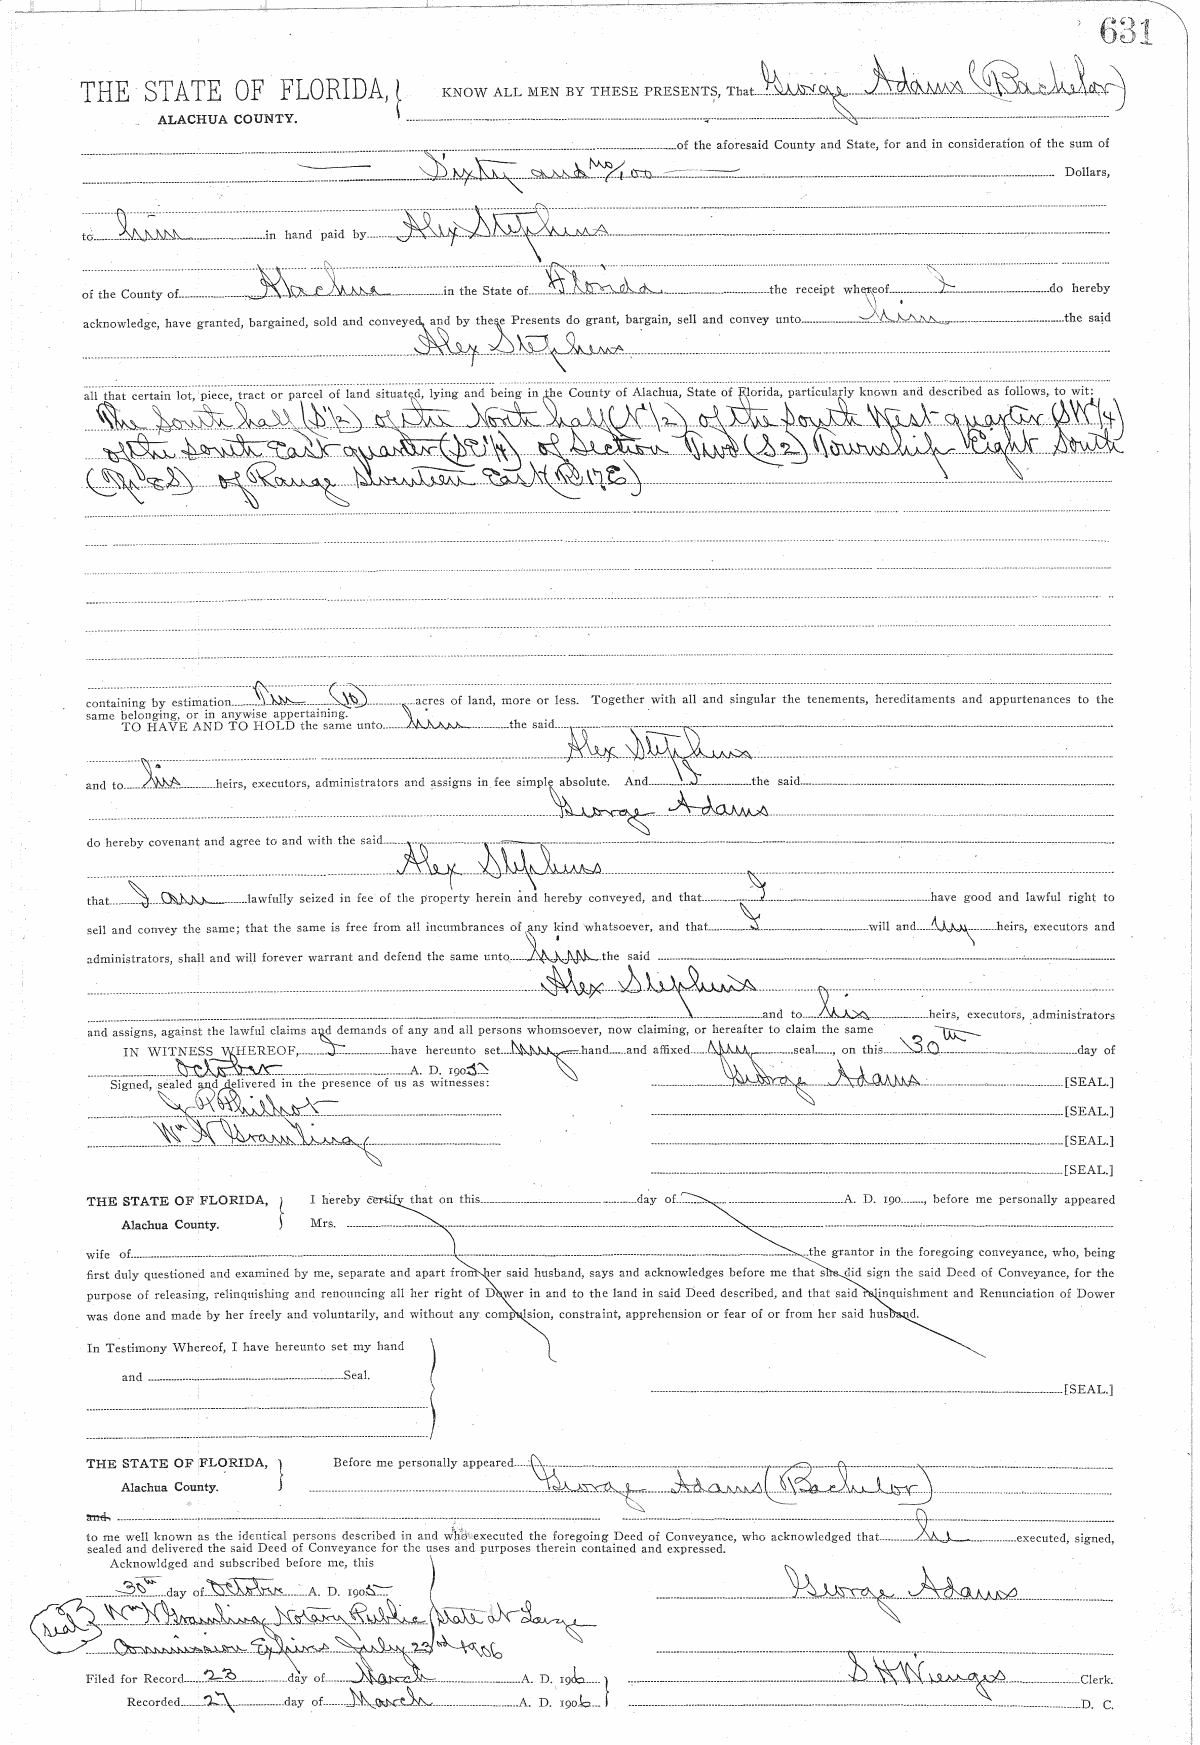 631
THE STATE OF FLORIDA, KNOW ALL MEN BY THESE PRESENTS, That George Adams (Bachelor)
ALACHUA COUNTY.
of the aforesaid County and State, for and in consideration of the sum of
Sixty and no/100 Dollars,
to him in hand paid by Alex Stephens
of the County of Alachua in the State of Florida the receipt whereof I do hereby
acknowledge, have granted, bargained, sold and conveyed, and by these Presents do grant, bargain, sell and convey unto him the said
Alex Stephens
all that certain lot, piece, tract or parcel of land situated, lying and being in the County of Alachua, State of Florida, particularly known and described as follows, to wit:
The South half (S 1/2) of the North half (N 1/2) of the South West quarter (SW 1/4)
of the South East quarter (SE 1/4) of Section Two (S 2) Township Eight South
(Tp 8 S) of Range Seventeen East (R 17 E)
containing by estimation Ten (10) acres of land, more or less. Together with all and singular the tenements, hereditaments and appurtenances to the
same belonging, or in anywise appertaining.
TO HAVE AND TO HOLD the same unto him the said
Alex Stephens
and to his heirs, executors, administrators and assigns in fee simple absolute. And I the said
George Adams
do hereby covenant and agree to and with the said
Alex Stephens
that I am lawfully seized in fee of the property herein and hereby conveyed, and that I have good and lawful right to
sell and convey the same; that the same is free from all incumbrances of any kind whatsoever, and that I will and my heirs, executors and
administrators, shall and will forever warrant and defend the same unto him the said
Alex Stephens
and to his heirs, executors, administrators
and assigns, against the lawful claims and demands of any and all persons whomsoever, now claiming, or hereafter to claim the same
IN WITNESS WHEREOF, I have hereunto set my hand and affixed my seal, on this 30th day of
October A. D. 1905
Signed, sealed and delivered in the presence of us as witnesses: George Adams [SEAL.]
Philpot [SEAL.]
Wm N Gramling [SEAL.]
[SEAL.]
THE STATE OF FLORIDA, I hereby certify that on this day of A. D. 190 , before me personally appeared
Alachua County. Mrs.
wife of the grantor in the foregoing conveyance, who, being
first duly questioned and examined by me, separate and apart from her said husband, says and acknowledges before me that she did sign the said Deed of Conveyance, for the
purpose of releasing, relinquishing and renouncing all her right of Dower in and to the land in said Deed described, and that said relinquishment and Renunciation of Dower
was done and made by her freely and voluntarily, and without any compulsion, constraint, apprehension or fear of or from her said husband.
In Testimony Whereof, I have hereunto set my hand
and Seal.
[SEAL.]
THE STATE OF FLORIDA, Before me personally appeared
Alachua County. George Adams (Bachelor)
and
to me well known as the identical persons described in and who executed the foregoing Deed of Conveyance, who acknowledged that he executed, signed,
sealed and delivered the said Deed of Conveyance for the uses and purposes therein contained and expressed.
Acknowldged and subscribed before me, this
30th day of October A. D. 1905 George Adams
seal Wm N Gramling Notary Public State at Large
Commission Expires July 23rd 1906
Filed for Record 23 day of March A. D. 1906 S H Wienges Clerk.
Recorded 27 day of March A. D. 1906 D. C.